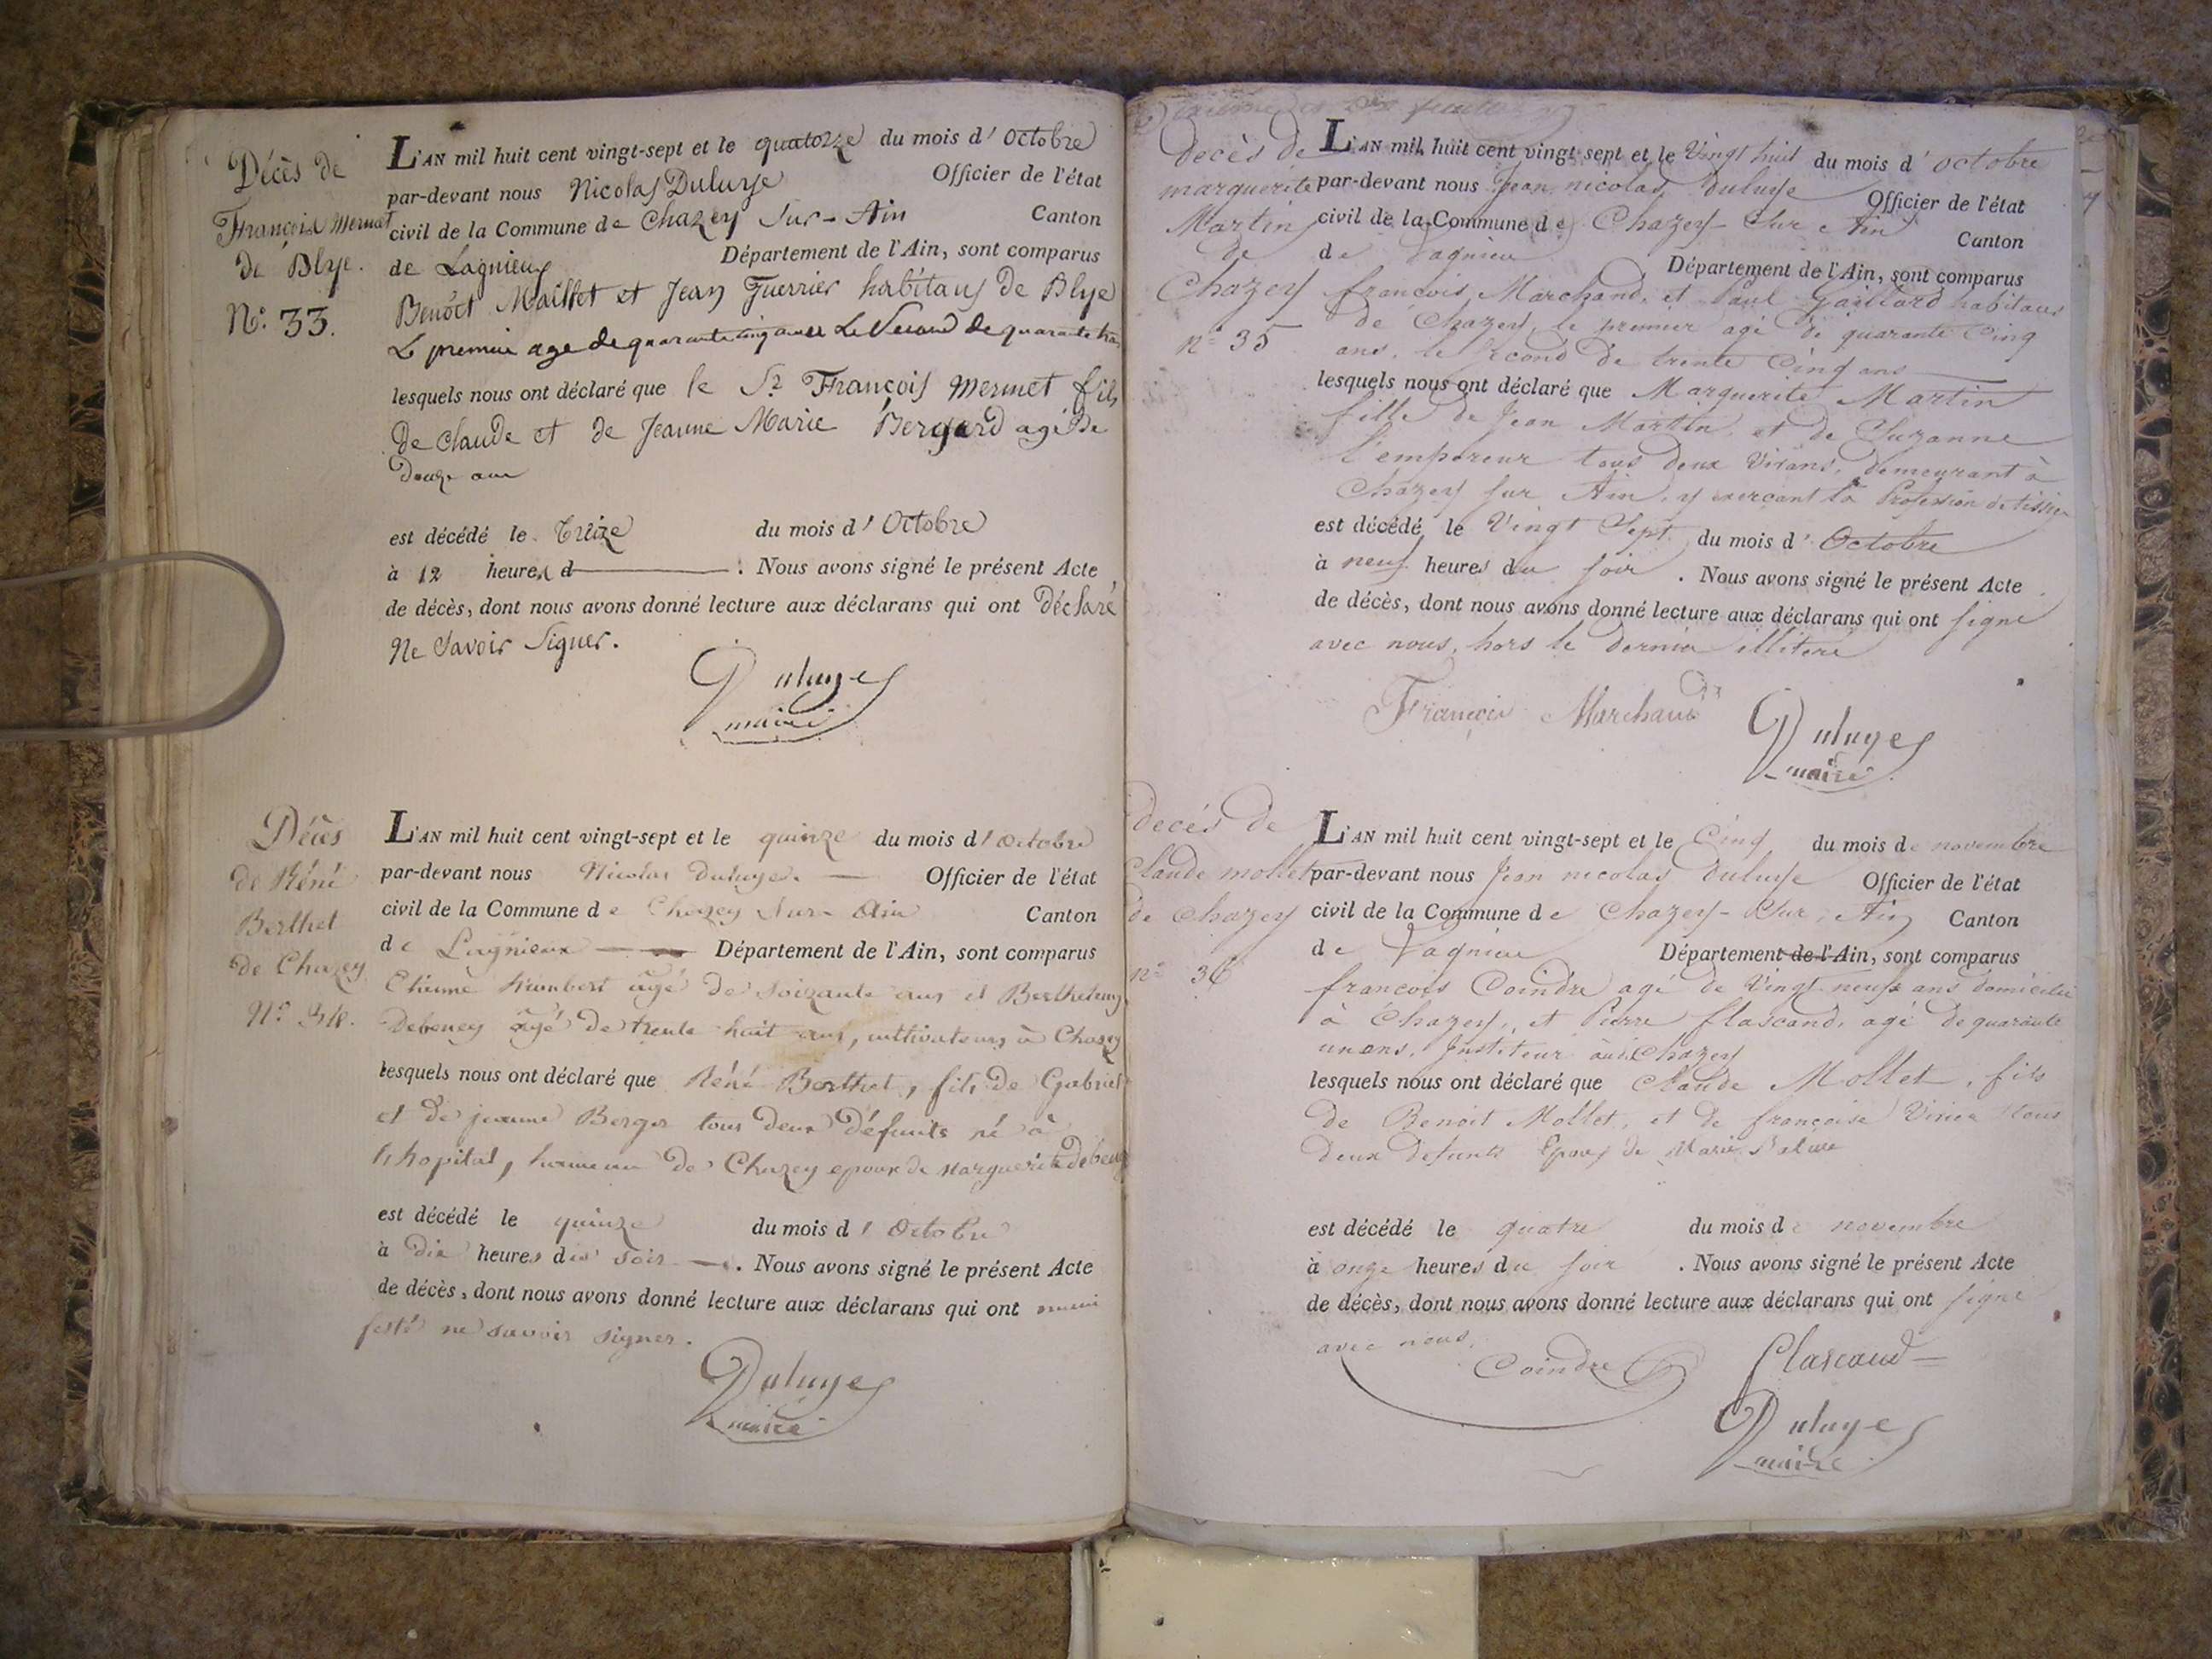 Décès de
François Mermet
de Blye.
N.° 33.
L'AN mil huit cent vingt-sept et le quatorze du mois d'Octobre
par-devant nous Nicolas Duluye Officier de l'état
civil de la Commune de Chazey Sur-Ain Canton
de Lagnieux Département de l'Ain, sont comparus
Benoît Maillet et Jean Guerrier habitans de Blye
Le premier age de quarante cinq ans Le Second de quarante
lesquels nous ont déclaré que le Sr. François Mermet fils
de Claude et de Jeanne Marie agé de
Douze ans
est décédé le Treize du mois d'Octobre
à 12 heures d . Nous avons signé le présent Acte
de décès, dont nous avons donné lecture aux déclarans qui ont Déclaré
Ne Savoir Signer.
Duluye
maire
Décès
de Réné
Berthet
de Chazey
N.° 34.
L'AN mil huit cent vingt-sept et le quinze du mois d'Octobre
par-devant nous Nicolas Duluye. Officier de l'état
civil de la Commune de Chazey Sur-Ain Canton
de Lagnieux Département de l'Ain, sont comparus
Humbert âgé de soixante ans et
Debeney âgé de trente huit ans, cultivateurs à Chazey
lesquels nous ont déclaré que Réné Berthet, fils de Gabriel
et de jeanne Berger tous deux défunts né à
l'hopital, hameau de Chazey epoux de Marguerite debeney
est décédé le quinze du mois d'Octobre
à Dix heures du soir . Nous avons signé le présent Acte
de décès, dont nous avons donné lecture aux déclarans qui ont mani
festé ne savoir signer.
Duluye
maire
decès de
marguerite
Martin
de
Chazey
n° 35
L'AN mil huit cent vingt-sept et le Vingt huit du mois d'octobre
par-devant nous Jean nicolas Duluye Officier de l'état
civil de la Commune de Chazey-Sur Ain Canton
de Lagnieu Département de l'Ain, sont comparus
françois Marchand, et Paul Gaillard habitans
de Chazey, le premier agé de quarante Cinq
ans, le second de trente Cinq ans
lesquels nous ont déclaré que Marguerite Martin
fille de Jean Martin et de Suzanne
l'empereur tous deux Vivans, demeurant à
Chazey sur Ain, y exerçant la Profession de tissier
est décédé le Vingt Sept du mois d'Octobre
à neuf heures du soir . Nous avons signé le présent Acte
de décès, dont nous avons donné lecture aux déclarans qui ont signé
avec nous, hors le dernier illiteré
François Marchand
Duluye
maire
decés de
Claude mollet
de Chazey
n° 36
L'AN mil huit cent vingt-sept et le Cinq du mois de novembre
par-devant nous Jean nicolas Duluye Officier de l'état
civil de la Commune de Chazey-Sur, Ain Canton
de Lagnieu Département de l'Ain, sont comparus
françois Coindre agé de Vingt neuf ans domicilié
à Chazey, et Pierre flascand, agé de quarante
un ans, Instituteur audit Chazey
lesquels nous ont déclaré que Claude Mollet, fils
de Benoit Mollet, et de françoise tous
deux défunts Epoux de Marie
est décédé le quatre du mois de novembre
à onze heures du soir . Nous avons signé le présent Acte
de décès, dont nous avons donné lecture aux déclarans qui ont signé
avec nous,
Coindre
flascand
Duluye
maire